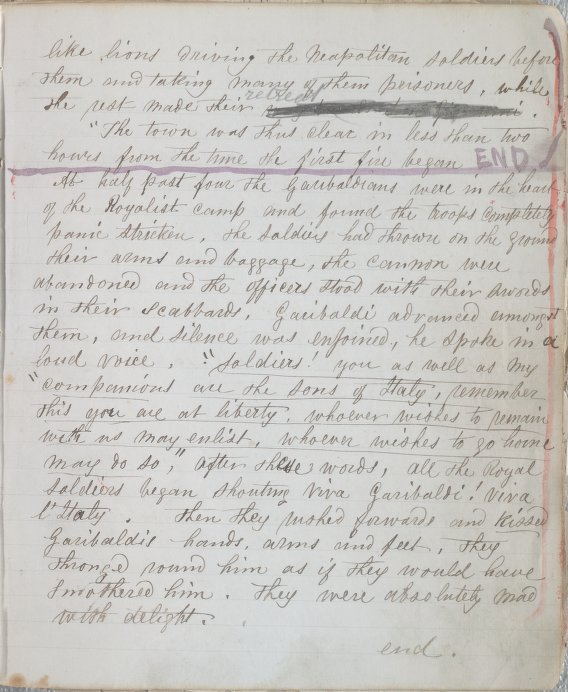 like lions driving the Neapolitan soldiers before
them and taking many of them prisoners, while
the rest made their retreat .
"The town was thus clear in less than two
hours from the time the first fire began END.
At half past four the Garibaldians were in the heart
of the Royalist camp and found the troops completely
panic stricken, the soldiers had thrown on the ground
their arms and baggage, the cannon were
abandoned and the officers stood with their swords
in their scabbards, Garibaldi advanced amongst
them, and silence was enjoined, he spoke in a
loud voice. "Soldiers! you as well as my
"companions are the sons of Italy, remember
this you are at liberty, whoever wishes to remain
with us may enlist, whoever wishes to go home
may do so," after these words, all the Royal
soldiers began shouting Viva Garibaldi! Viva
l'Italy. Then they rushed forwards and kissed
Garibaldis hands, arms and feet, They
thronged round him as if they would have
smothered him. They were absolutely mad
with delight.
end.